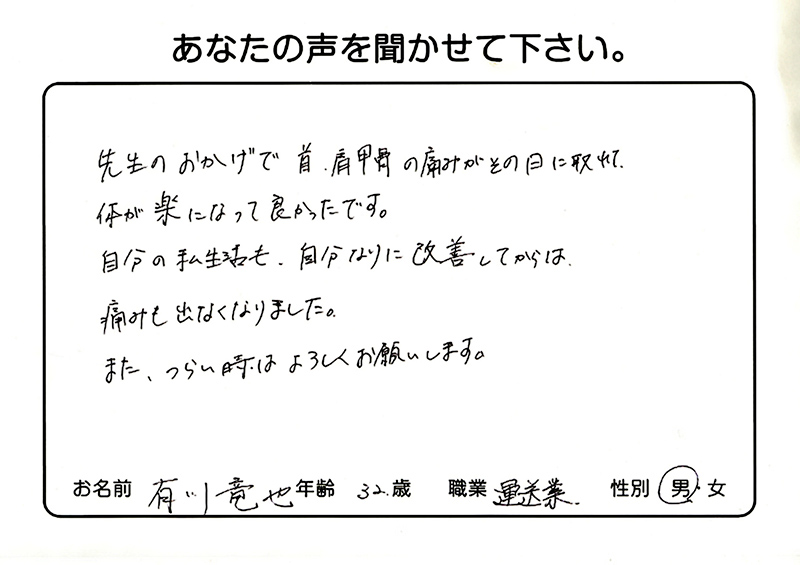 あなたの声を聞かせて下さい。
先生のおかげで首.肩甲骨の痛みがその日に取れて、
体が楽になって良かったです。
自分の私生活も、自分なりに改善してからは、
痛みも出なくなりました。
また、つらい時はよろしくお願いします。
お名前 有川竜也 年齢 32.歳 職業 運送業. 性別 男・女